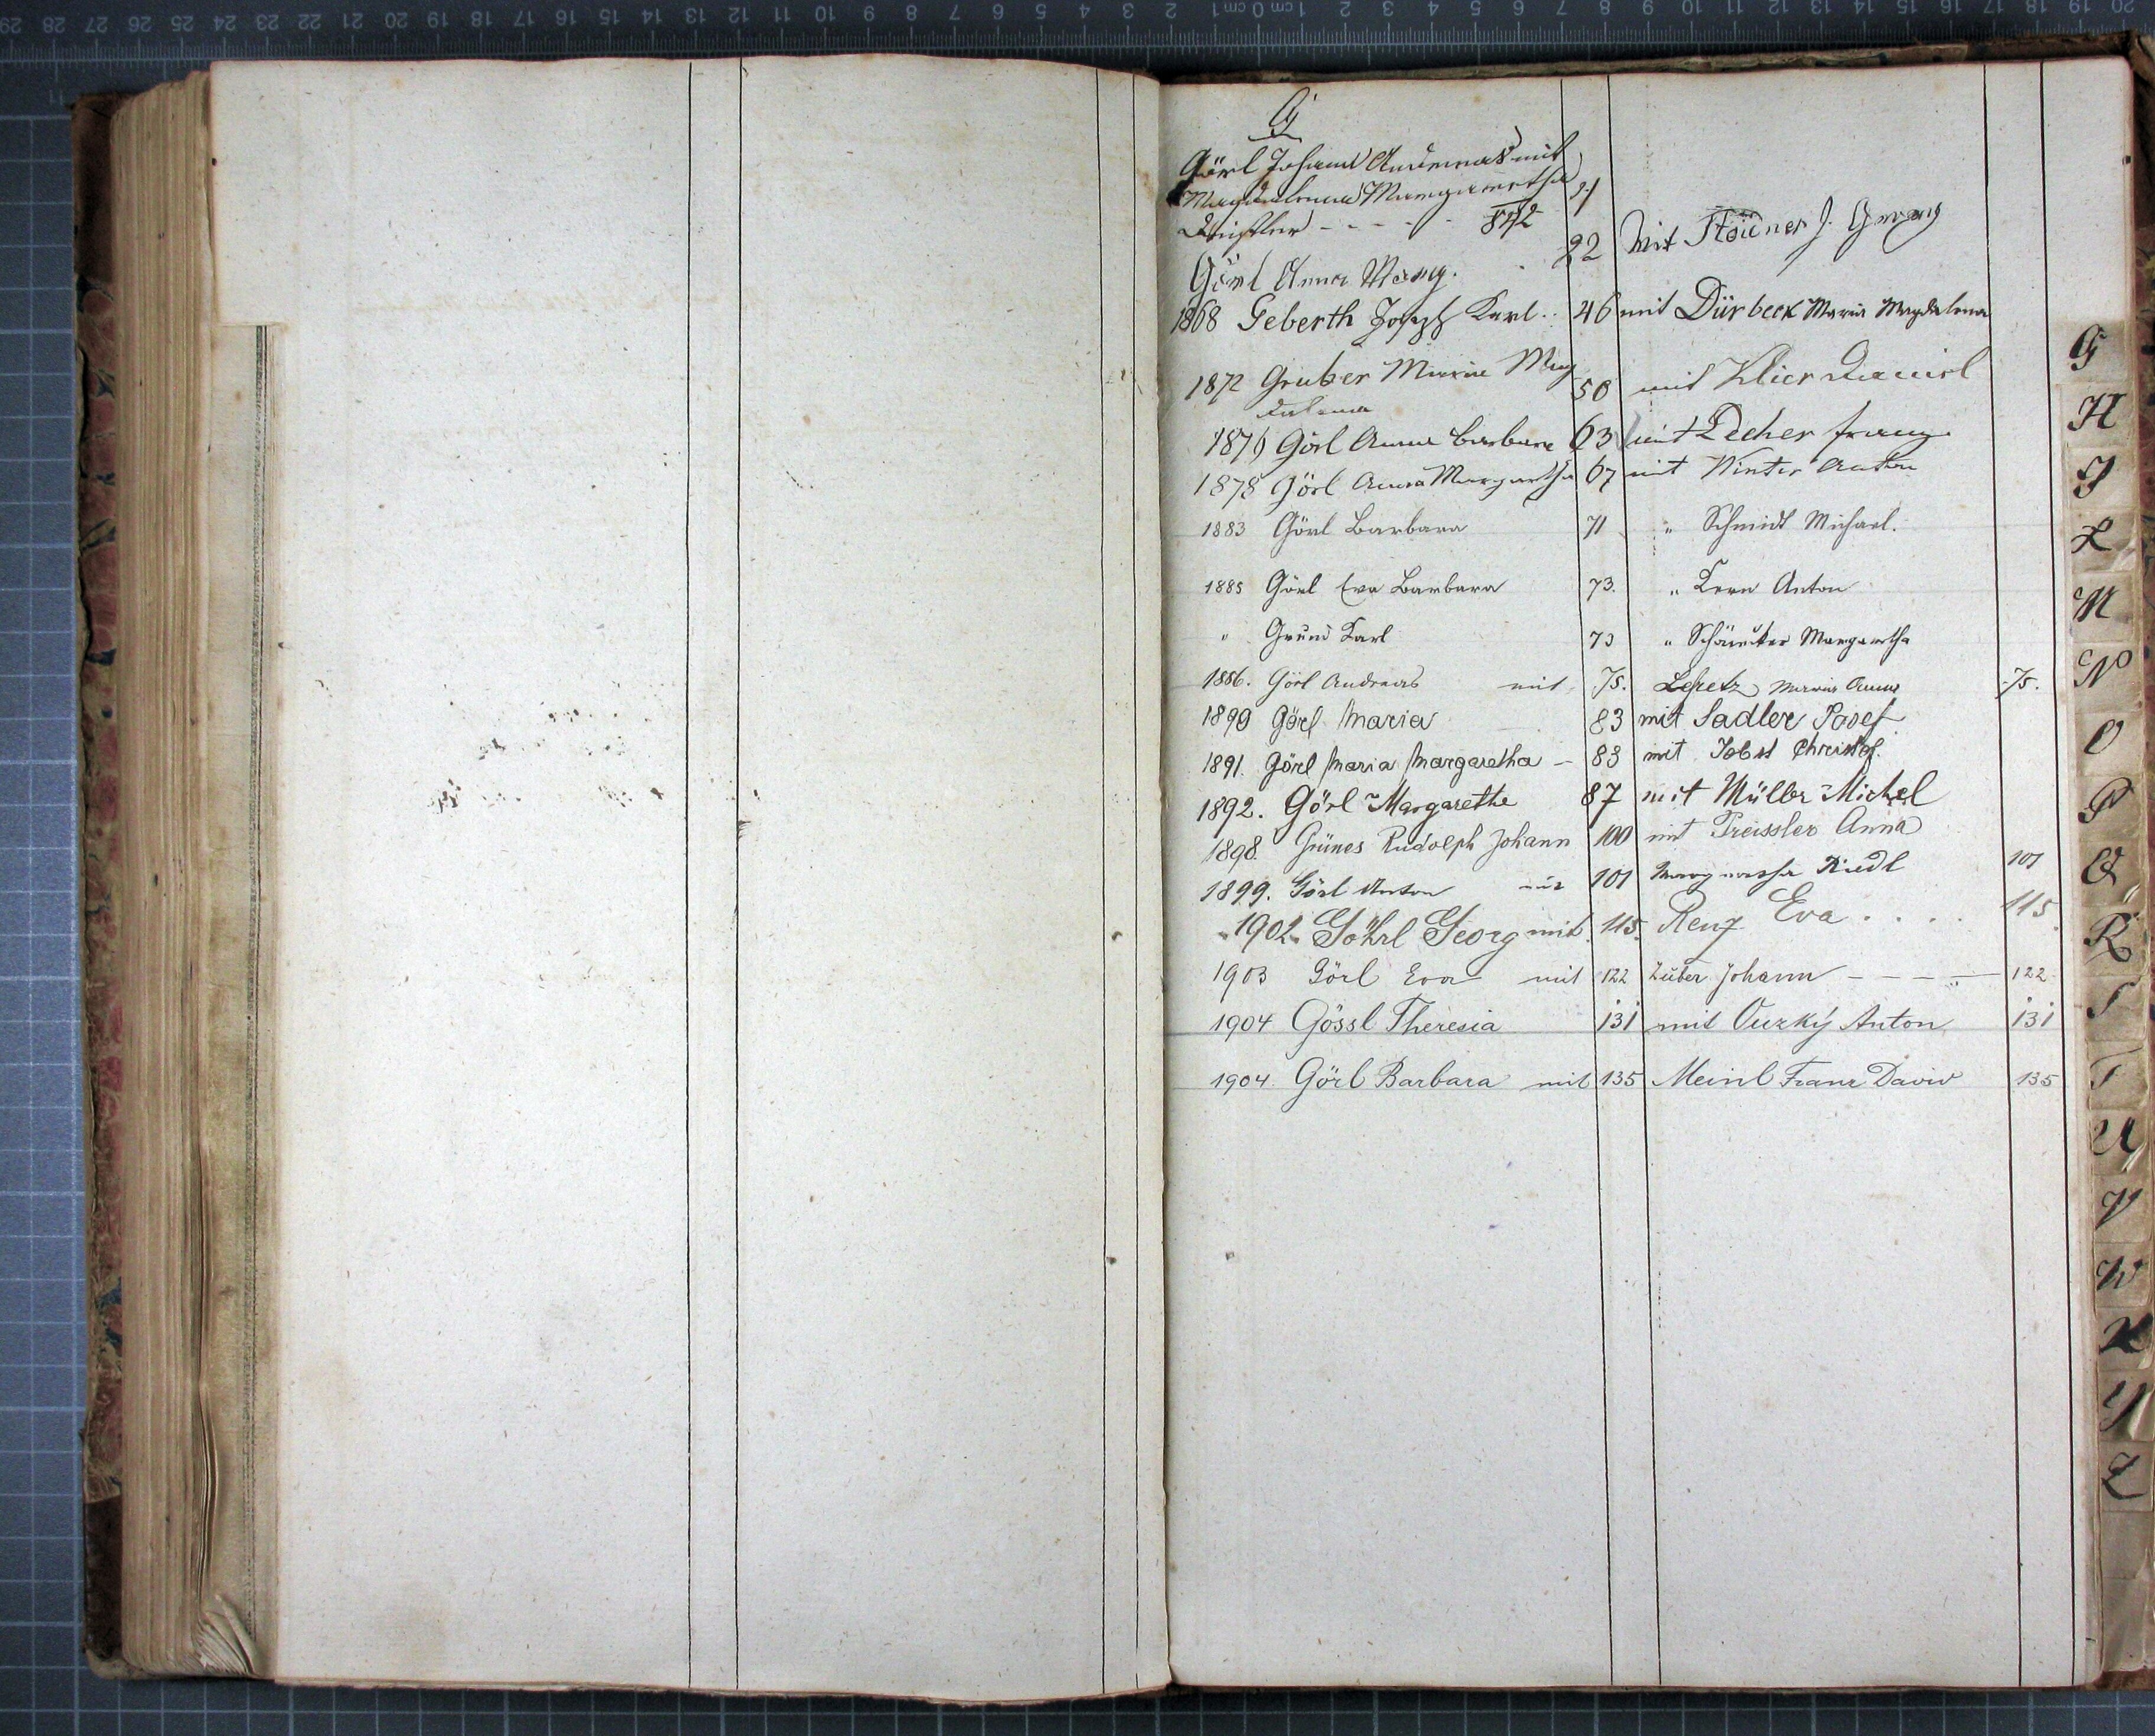 G
Görl Johann Andreas mit
Magdalena Margaretha 21
Deistler - - - - 842
Görl Anna Marg. 22 Mit Stöidner J. Georg
1868 Geberth Joseph Karl .. 46 mit Dürbeck Maria Magdalena
1872 Gruber Maria Mag 50 mit Klier Daniel
dalena
1876 Görl Anna Barbara 63 mit Decher Franz
1878 Görl Anna Margaretha 67 mit Winter Anton
1883 Görl Barbara 71 " Schmidt Michael.
1885 Görl Eva Barbara 73. " Kern Anton
" Grund Karl 73 " Margaretha
1886. Görl Andreas mit 75. Maria Anna 75.
1890 Görl Maria 83 mit Sadler Josef
1891. Görl Maria Margaretha – 83 mit Jobst Christof.
1892. Görl Margarethe 87 mit Müller Michel
1898. Grünes Rudolph Johann 100 mit Preissler Anna
1899. Görl Anton mit 101 Margaretha Riedl 101
1902. Göhrl Georg mit 115. Renz Eva . . . . 115
1903 Görl Eva mit 122 Zuber Johann - - - - 122
1904 Gössl Theresia 131 mit Ourzký Anton 131
1904 Görl Barbara mit 135 Meinl Franz David 135
G
H
J
L
M
N
O
P
Q
R
S
T
U
V
W
X
Y
Z